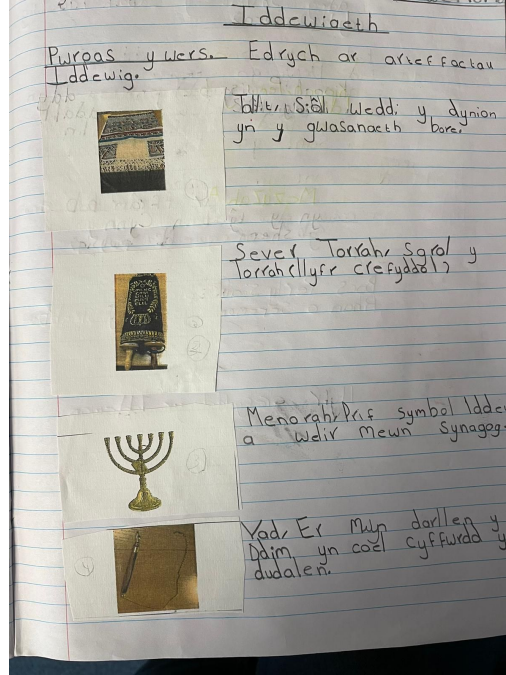 Iddewiaeth
Pwrpas y wers. Edrych ar arteffactau
Iddewig.
Tallit, Siôl weddi y dynion
yn y gwasanaeth bore.
Sever Torrah, Sgrol y
Torrah (llyfr crefyddol)
Menorah, Prif symbol Idde
a welir mewn Synagog.
Yad, Er mwyn darllen y
Ddim yn cael cyffwrdd y
dudalen.